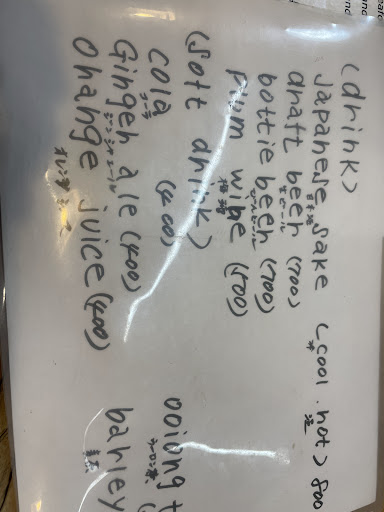 <drink>
Japanese sake (cool・hot) 800
日本酒 冷 温
draft beer (700)
生ビール
bottle beer (700)
ビンビール
Plum wine (500)
梅酒
(Soft drink)
cola (400)
コーラ
Ginger ale (400)
ジンジャエール
Orange juice (400)
オレンジジュース
oolong t
ウーロン茶
barley